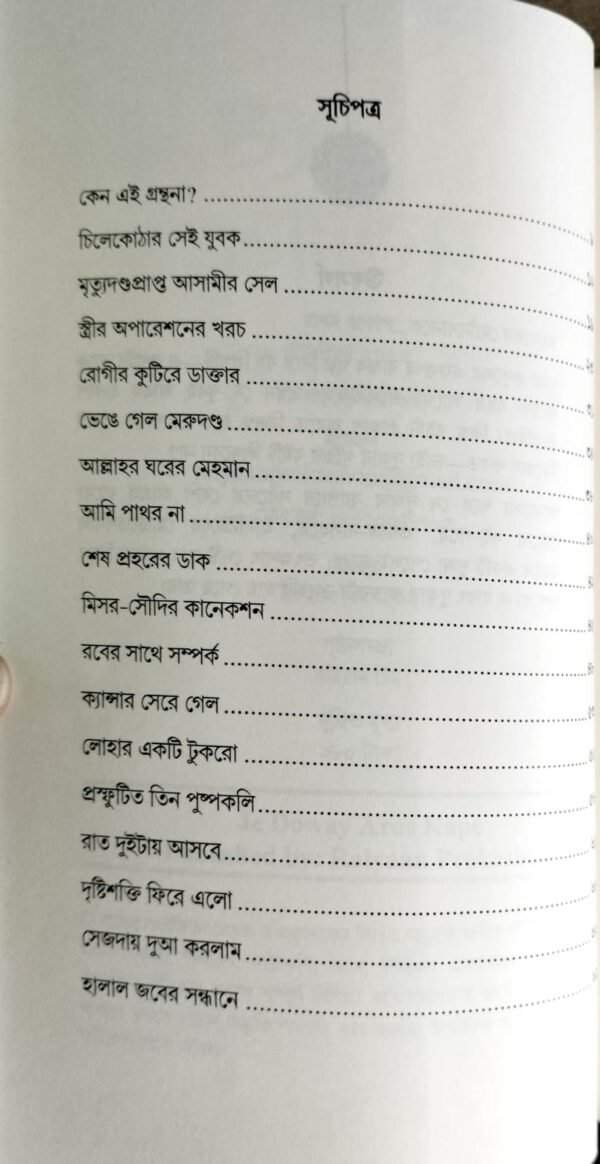 সূচিপত্র
কেন এই গ্রন্থনা? ........................................
চিলেকোঠার সেই যুবক........................................
মৃত্যুদণ্ডপ্রাপ্ত আসামীর সেল ........................................
স্ত্রীর অপারেশনের খরচ ........................................
রোগীর কুটিরে ডাক্তার ........................................
ভেঙে গেল মেরুদণ্ড ........................................
আল্লাহর ঘরের মেহমান ........................................
আমি পাথর না ........................................
শেষ প্রহরের ডাক ........................................
মিসর-সৌদির কানেকশন ........................................
রবের সাথে সম্পর্ক ........................................
ক্যান্সার সেরে গেল ........................................
লোহার একটি টুকরো ........................................
প্রস্ফুটিত তিন পুষ্পকলি ........................................
রাত দুইটায় আসবে........................................
দৃষ্টিশক্তি ফিরে এলো ........................................
সেজদায় দুআ করলাম ........................................
হালাল জবের সন্ধানে ........................................